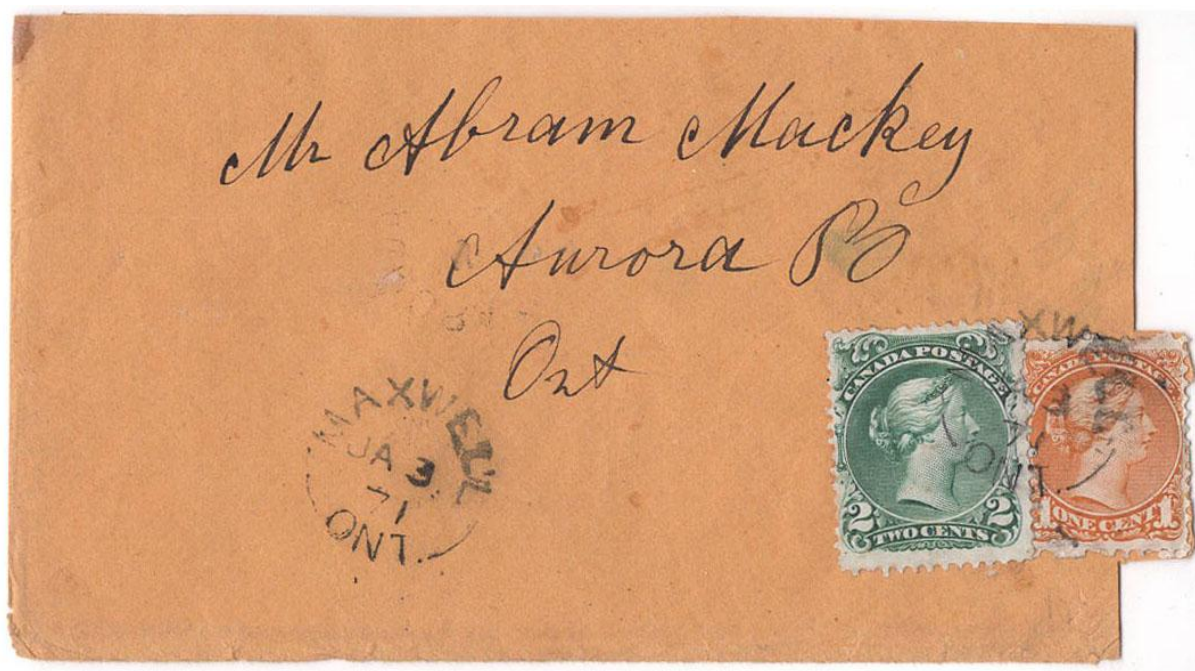 Mr Abram Mackey
Aurora PO
Ont
MAXWELL
JA 3
71
ONT.
CANADA POSTAGE
2 TWO CENTS 2
CANADA POSTAGE
1 ONE CENT 1
ONT